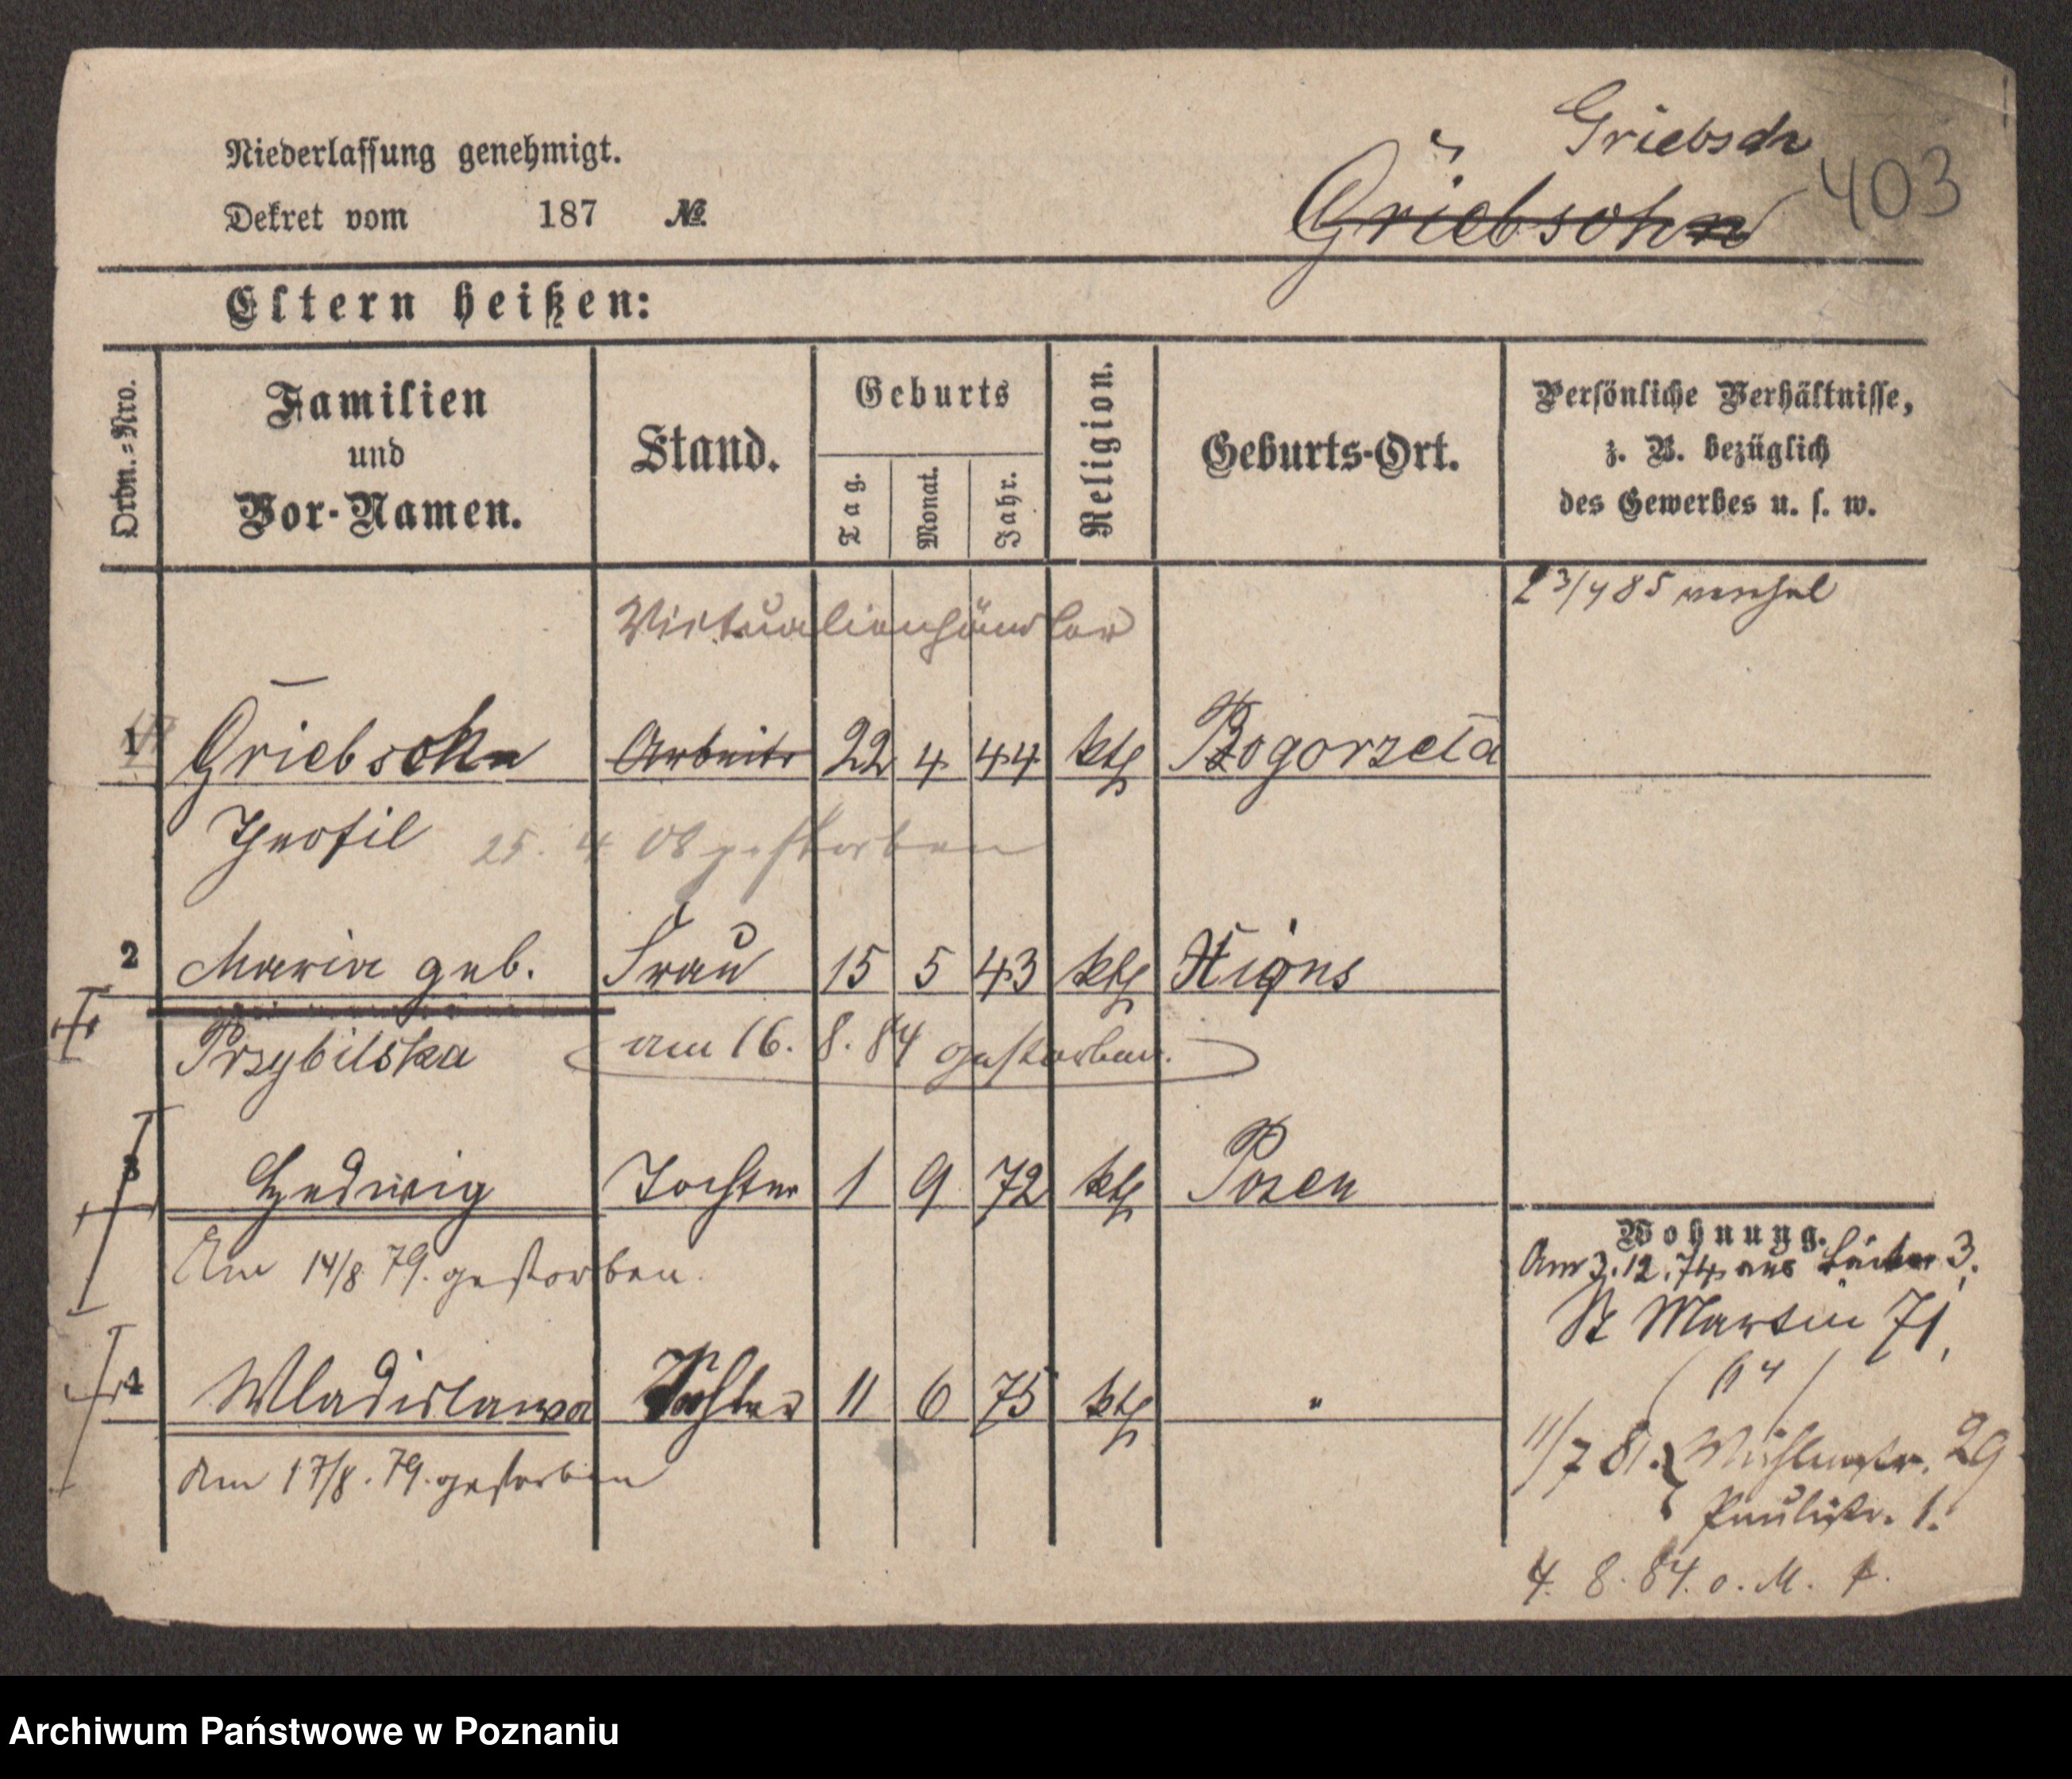 Griebsch
403
Niederlassung genehmigt.
Dekret vom 187 №
Griebsohn
Eltern heißen:
Ordn.-Nro.
Familien
und
Vor-Namen.
Stand.
Geburts
Tag.
Monat.
Jahr.
Religion.
Geburts-Ort.
Persönliche Verhältnisse,
z. B. bezüglich
des Gewerbes u. s. w.
Victualienhändler
1 Griebsch Arbeiter 22 4 44 kth Pogorzela
Theofil 25. 4 08 gestorben
2 Maria geb. Frau 15 5 43 kth
Przybilska am 16. 8. 84 gestorben.
3 Hedwig Tochter 1 9 72 kth Posen
Am 14/8 79. gestorben.
4 Wladislawa Tochter 11 6 75 kth "
Am 17/8. 79. gestorben
Wohnung.
Am 3.12.74 aus 3.
St Martin 71,
11/7 81. Mühlenstr. 29
Paulistr. 1.
4. 8. 84. o. M.
Archiwum Państwowe w Poznaniu